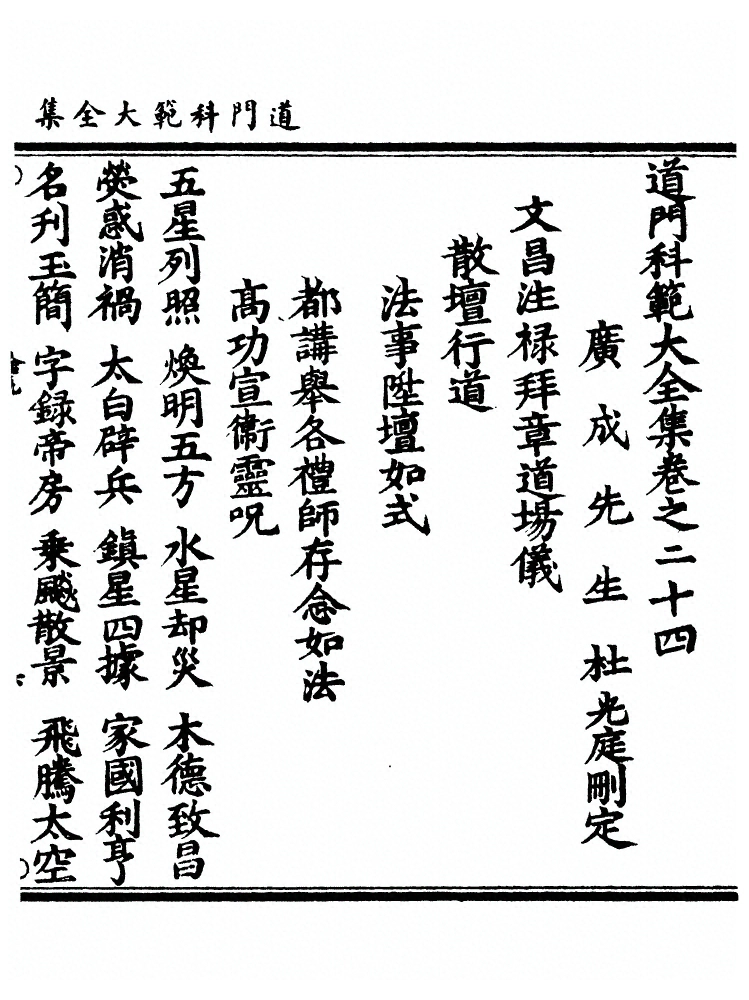 道門科範大全集
道門科範大全集卷之二十四
廣成先生杜光庭刪定
文昌注祿拜章道場儀
散壇行道
法事陞壇如式
都講舉各禮師存念如法
高功宣衞靈呪
五星列照 煥明五方 水星却災 木德致昌
熒惑消禍 太白辟兵 鎮星四據 家國利亨
名刋玉簡 字録帝房 乗飈散景 飛騰太空